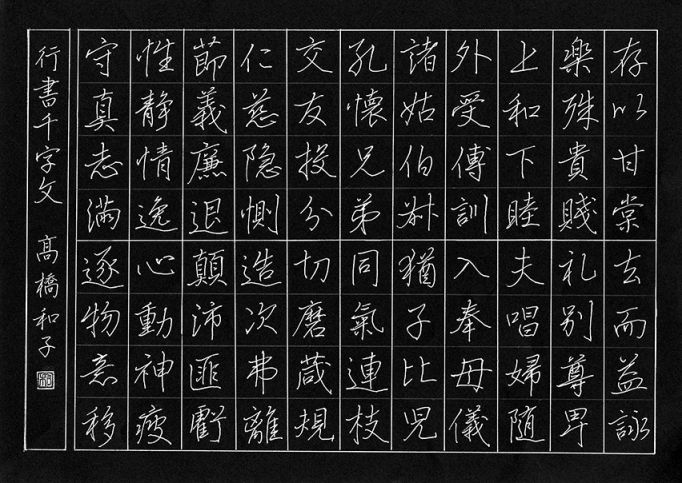 存以甘棠去而益詠
楽殊貴賤礼別尊卑
上和下睦夫唱婦随
外受傅訓入奉母儀
諸姑伯叔猶子比児
孔懐兄弟同氣連枝
交友投分切磨箴規
仁慈隠惻造次弗離
節義廉退顛沛匪虧
性静情逸心動神疲
守真志満逐物意移
行書千字文 髙橋和子